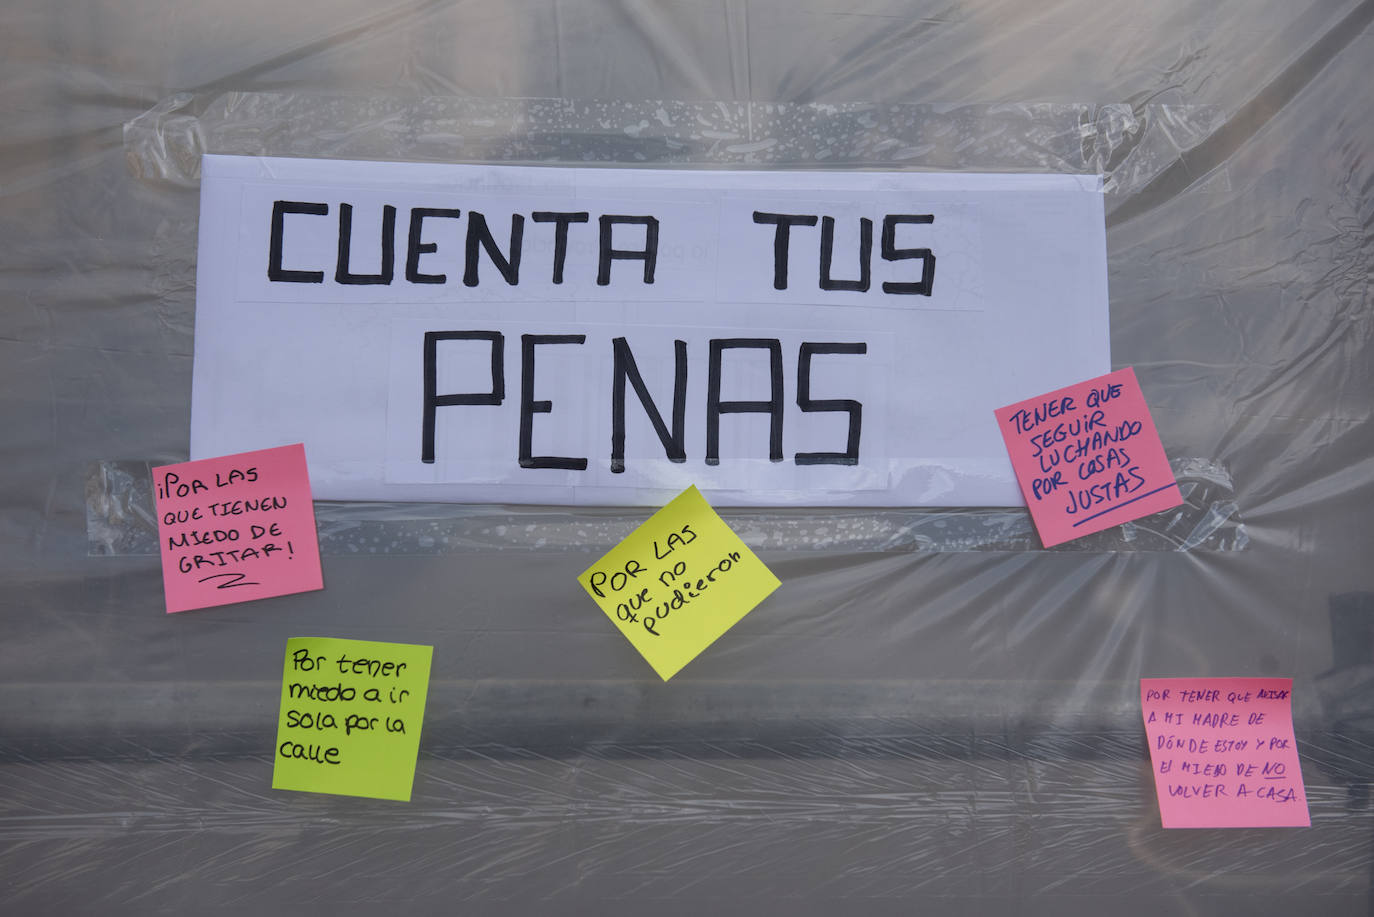 CUENTA TUS
PENAS
¡POR LAS
QUE TIENEN
MIEDO DE
GRITAR!
POR LAS
que no
pudieron
TENER QUE
SEGUIR
LUCHANDO
POR COSAS
JUSTAS
Por tener
miedo a ir
sola por la
calle
POR TENER QUE AVISAR
A MI MADRE DE
DÓNDE ESTOY Y POR
EL MIEDO DE NO
VOLVER A CASA.